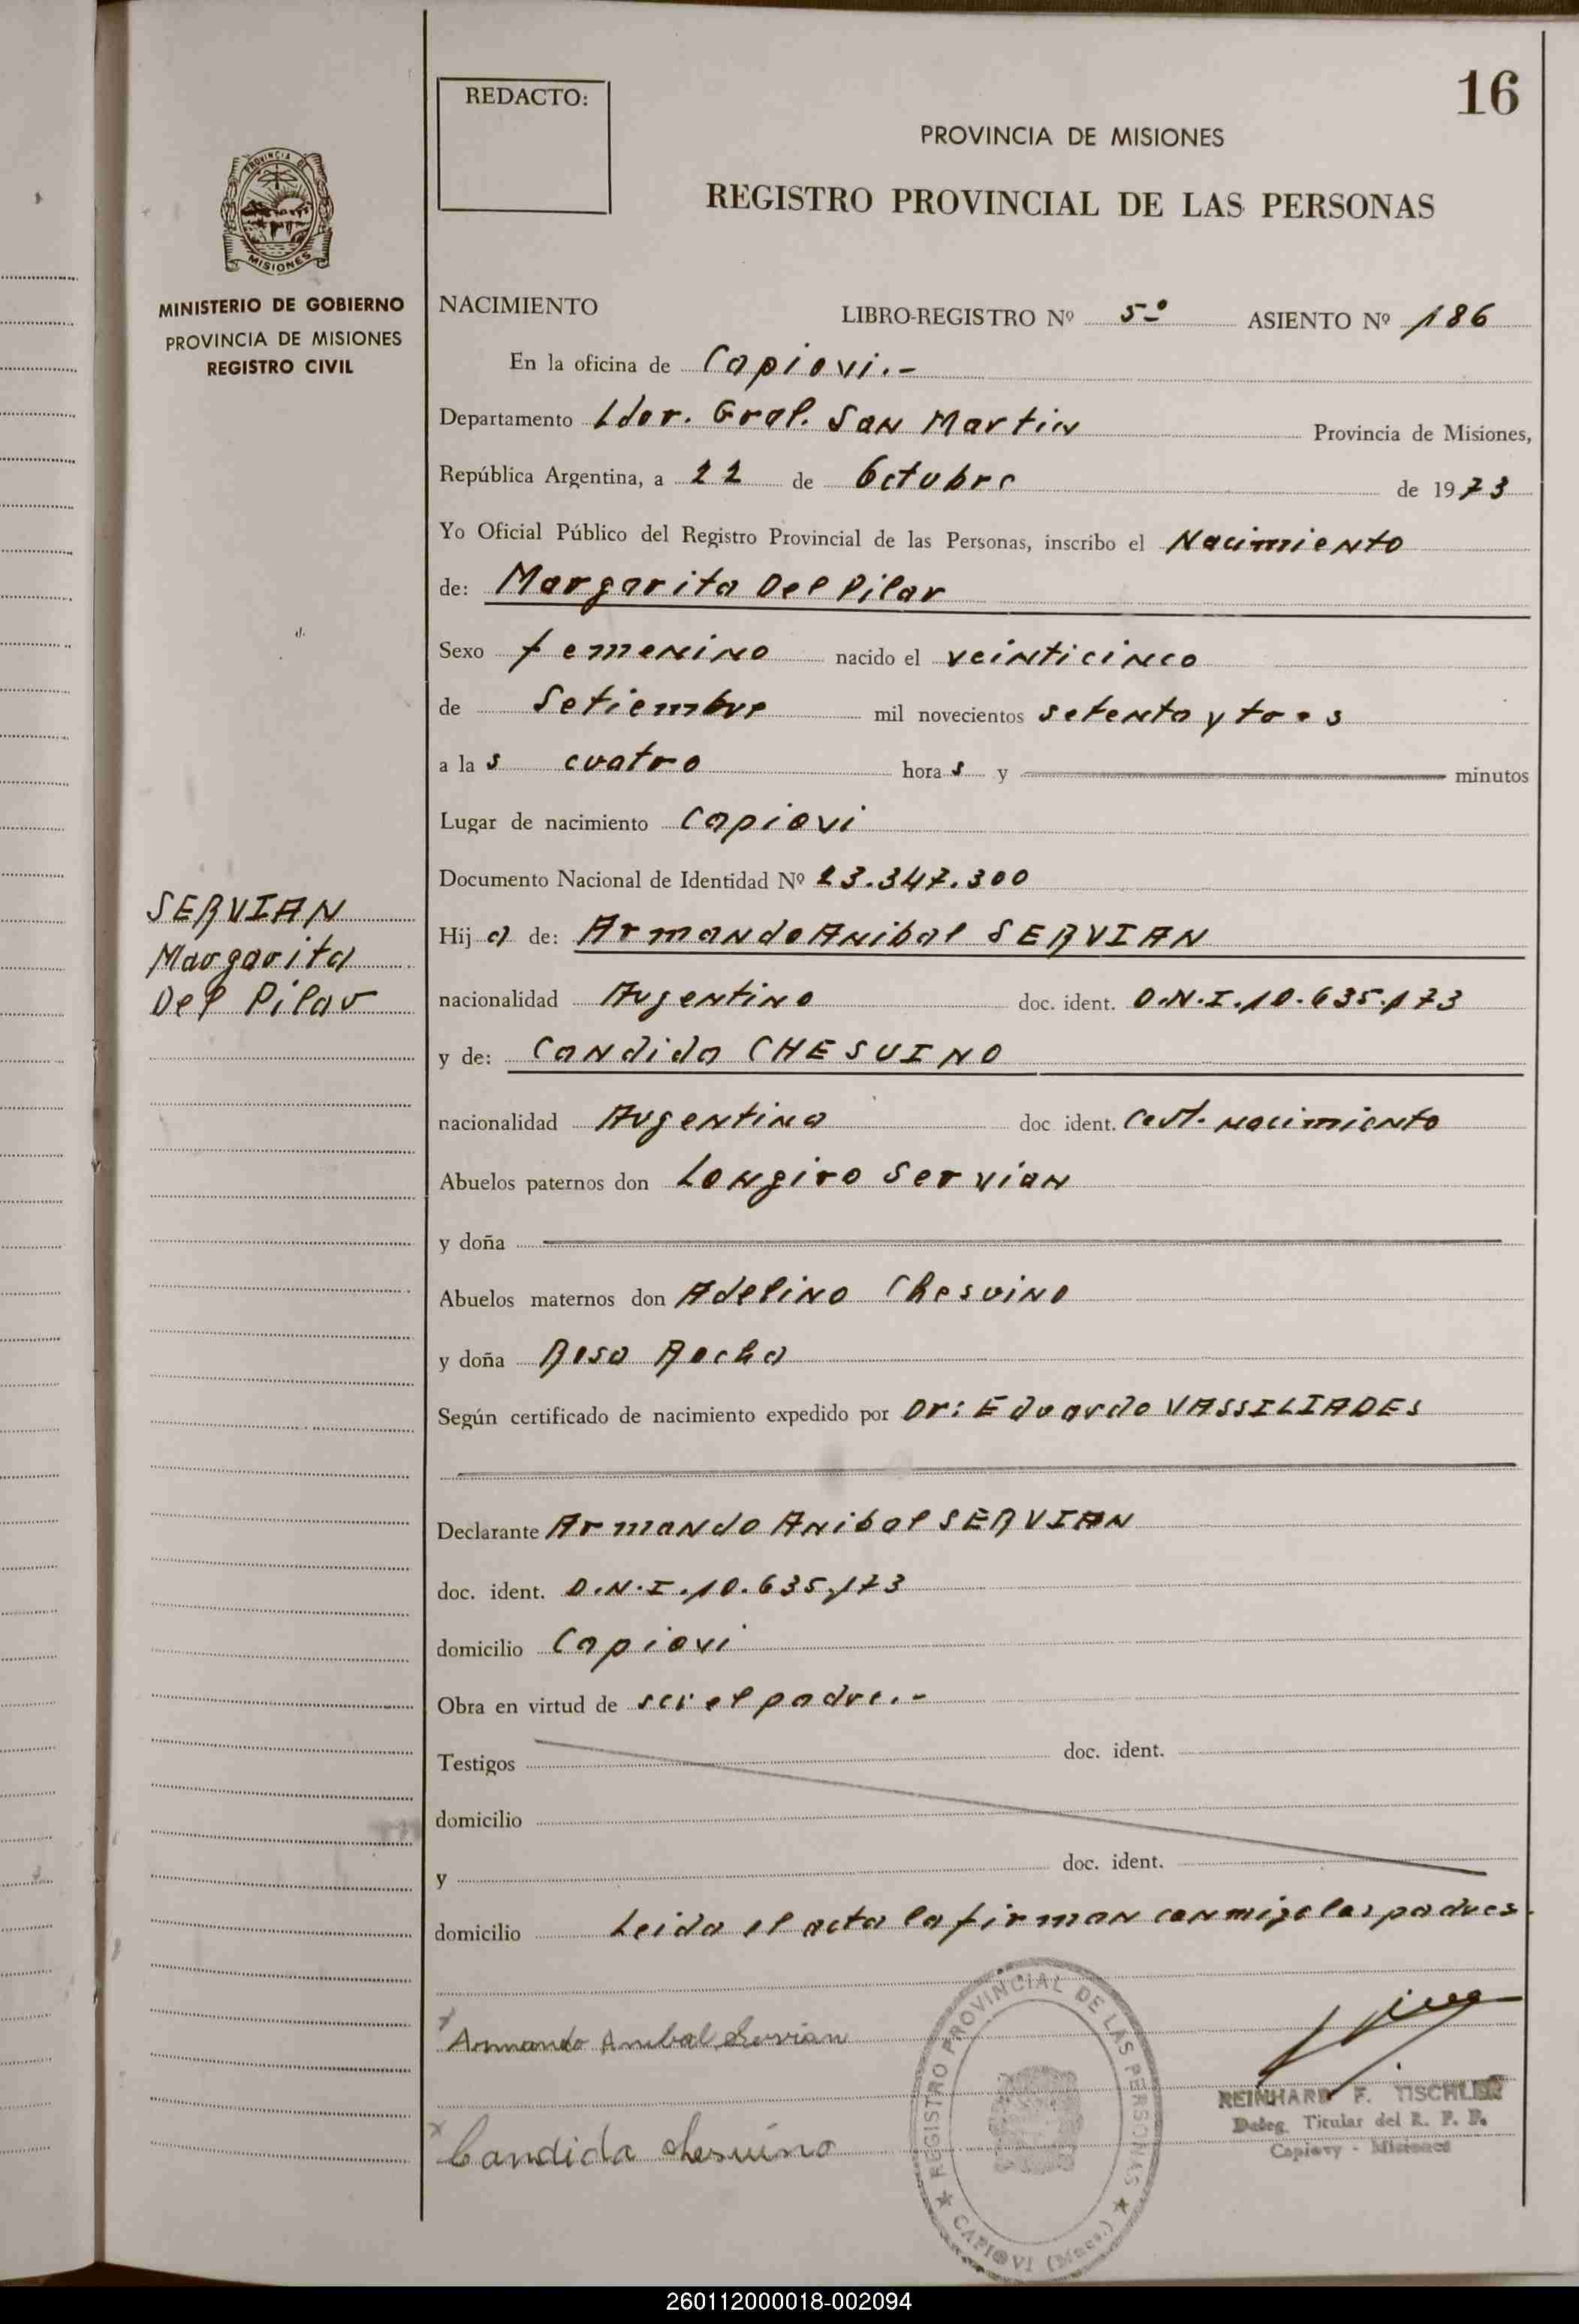 16
REDACTO:
PROVINCIA DE MISIONES
REGISTRO PROVINCIAL DE LAS PERSONAS
PROVINCIA DE
MISIONES
MINISTERIO DE GOBIERNO
PROVINCIA DE MISIONES
REGISTRO CIVIL
NACIMIENTO LIBRO-REGISTRO Nº 5º ASIENTO Nº 186
En la oficina de Capiovi.-
Departamento Ldor. Gral. San Martin Provincia de Misiones,
República Argentina, a 22 de Octubre de 1973
Yo Oficial Público del Registro Provincial de las Personas, inscribo el Nacimiento
de: Margarita Del Pilar
Sexo femenino nacido el veinticinco
de Setiembre mil novecientos setenta y tres
a las cuatro horas y minutos
Lugar de nacimiento Capiovi
Documento Nacional de Identidad Nº 23.347.300
SERVIAN
Margarita
Del Pilar
Hija de: Armando Anibal SERVIAN
nacionalidad Argentino doc. ident. D.N.I.10.635.173
y de: Candida CHESUINO
nacionalidad Argentina doc. ident. Cert. nacimiento
Abuelos paternos don Longiro Servian
y doña
Abuelos maternos don Adelino Chesuino
y doña Rosa Rocha
Según certificado de nacimiento expedido por Dr: Eduardo VASSILIADES
Declarante Armando Anibal SERVIAN
doc. ident. D.N.I.10.635.173
domicilio Capiovi
Obra en virtud de ser el padre.-
Testigos doc. ident.
domicilio
y doc. ident.
domicilio Leida el acta la firman conmigo los padres.
x Armando Anibal Servian
x Candida Chesuino
REGISTRO PROVINCIAL DE LAS PERSONAS
CAPIOVI (Mnes.)
REINHARD F. TISCHLER
Deleg. Titular del R. P. P.
Capiovy - Misiones
260112000018-002094